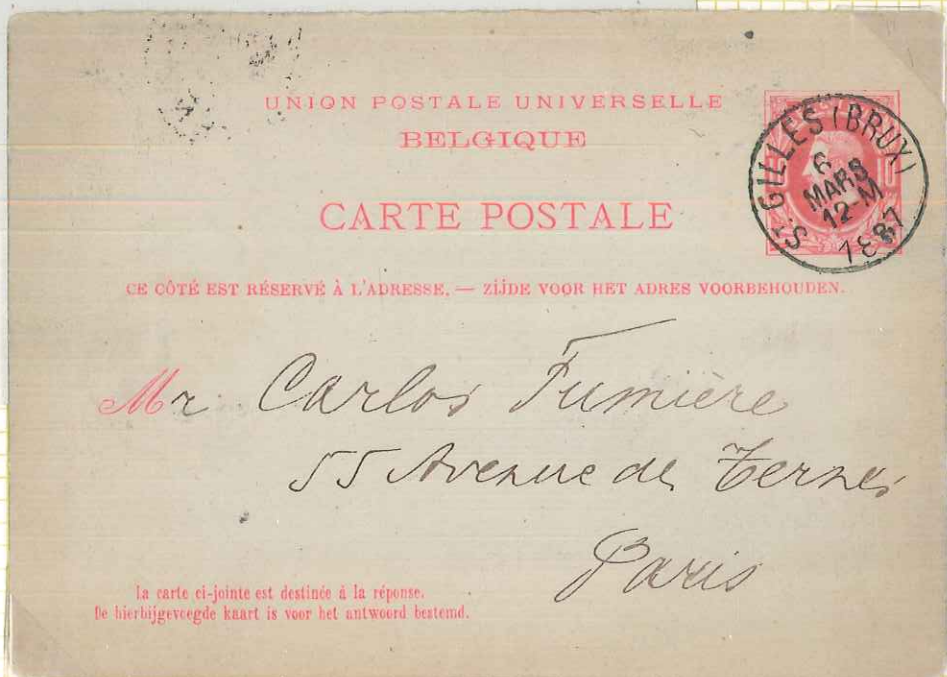 UNION POSTALE UNIVERSELLE
BELGIQUE
CARTE POSTALE
ST. GILLES (BRUX)
6
MARS
12-M
1887
CE CÔTÉ EST RÉSERVÉ À L'ADRESSE. — ZIJDE VOOR HET ADRES VOORBEHOUDEN.
Mr Carlos Fumière
55 Avenue des Ternes
Paris
La carte ci-jointe est destinée à la réponse.
De hierbijgevoegde kaart is voor het antwoord bestemd.